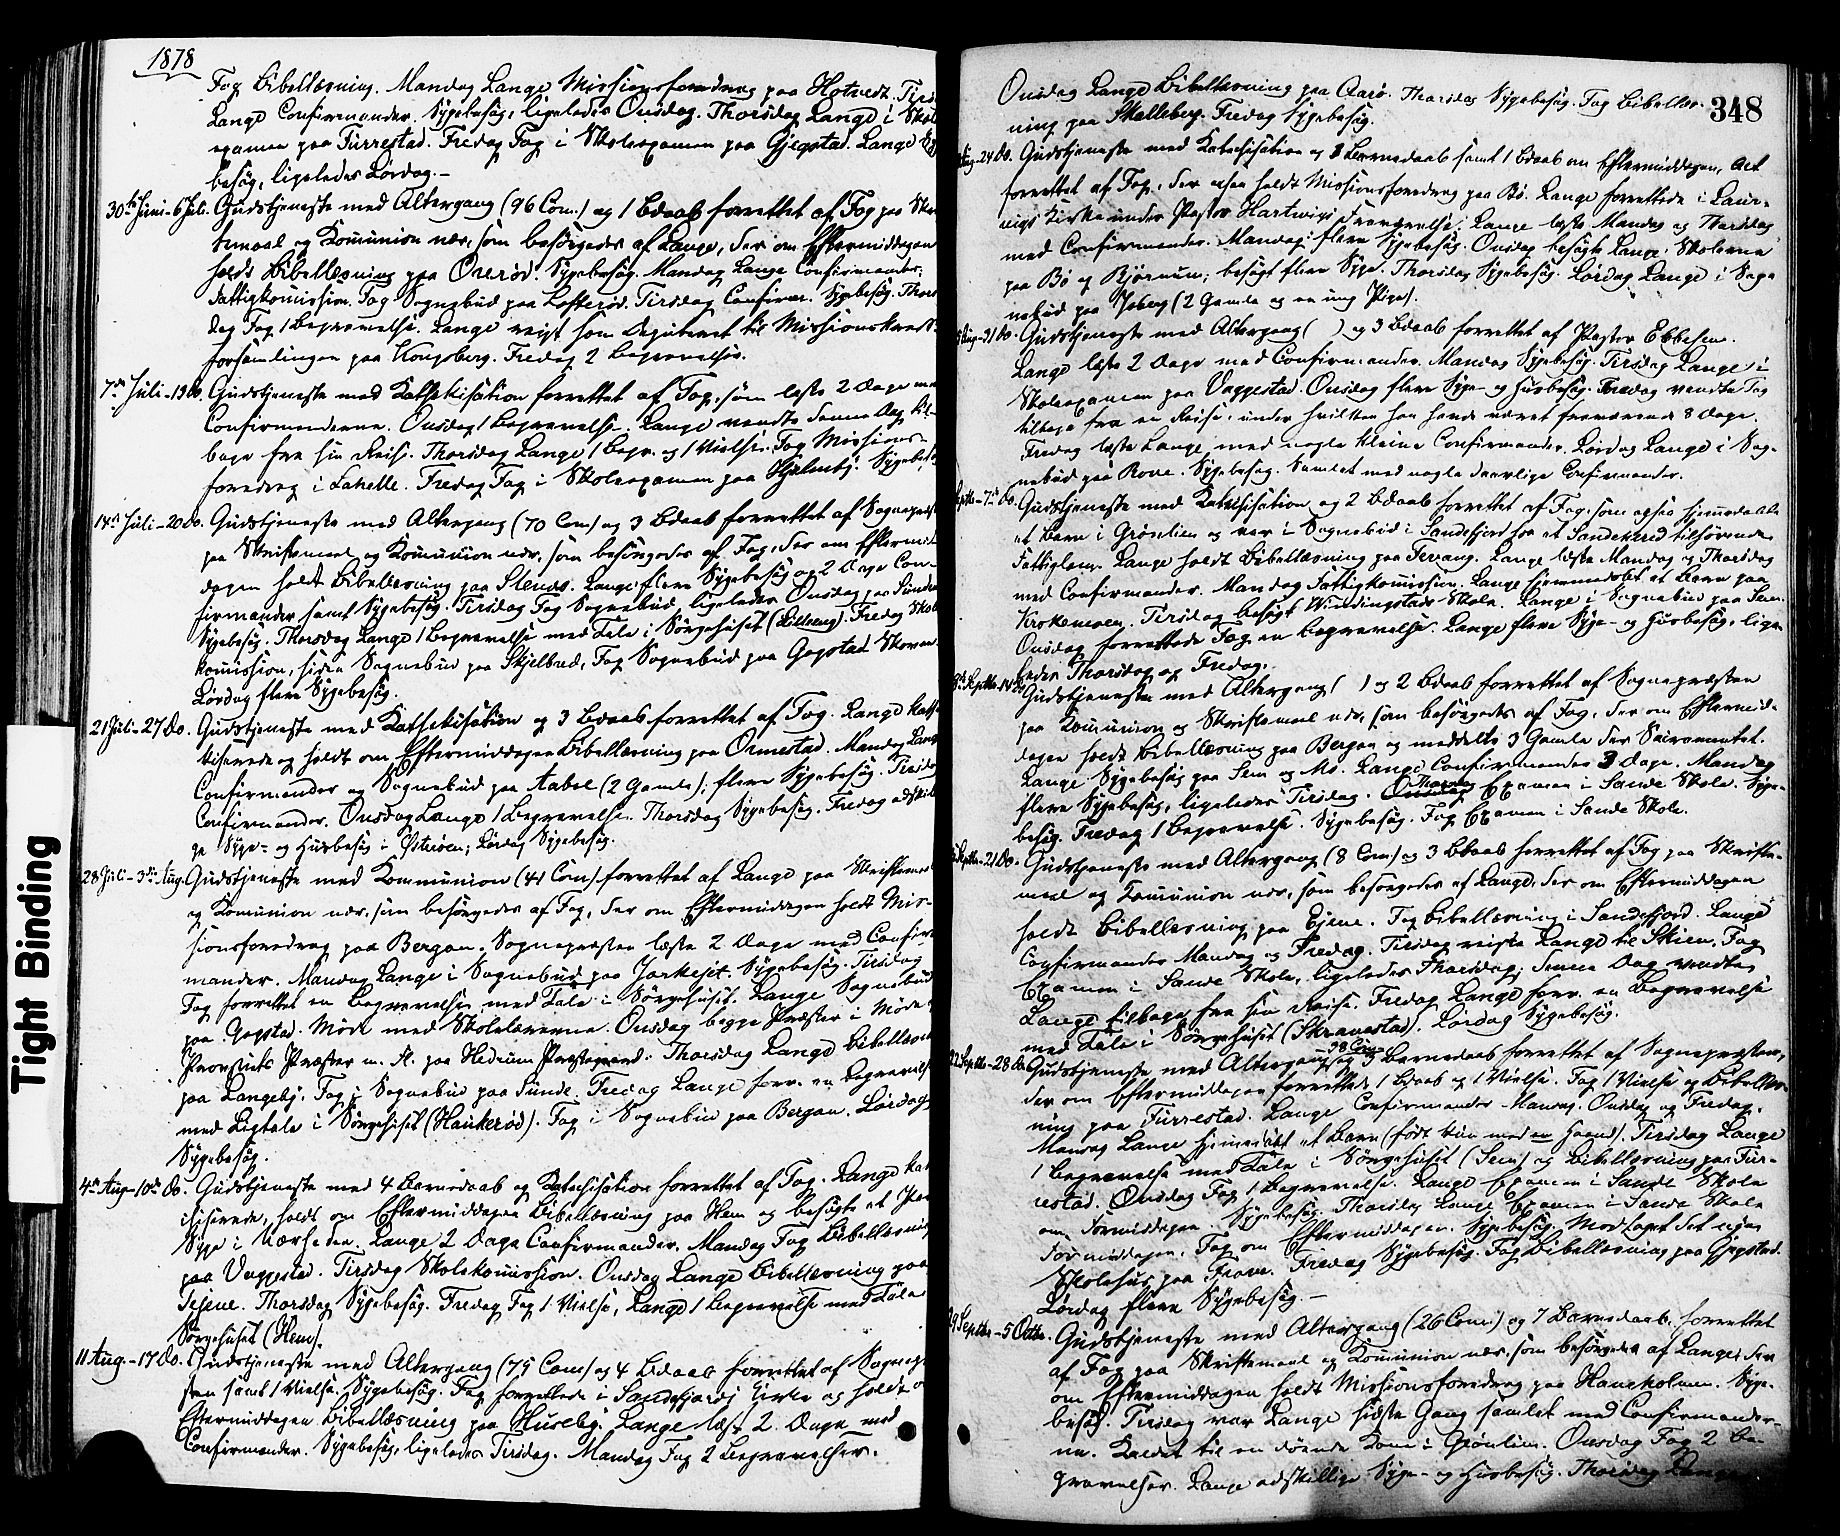 1878
Fog Bibellæsning. Mandag Lange Missionsforedrag paa Hotvedt. Tirs
Lange Confirmander. Sygebesøg, ligeledes Onsdag. Thorsdag Lange i Skol
examen paa Furrestad. Fredag Fog i Skoleexamen paa Gjegstad. Lange
besøg, ligeledes Lørdag. –
30te Juni-6 Juli. Gudstjeneste med Altergang (96 Com.) og 1 Bdaab forrettet af Fog paa Skri
temaal og Komunion nær, som besørgedes af Lange, der om Eftermiddagen
holdt Bibellæsning paa Orerød. Sygebesøg. Mandag Lange Confirmander;
Fattigkomission. Fog Sognebud paa Løkkerød. Tirsdag Confirm. Sygebesøg. Thors
dag Fog 1 Begravelse. Lange reist som Deputeret til Missionskreds-
forsamlingen paa Kongsberg. Fredag 2 Begravelser.
7de Juli-13 do. Gudstjeneste med Kathekisation forrettet af Fog, som læste 2 Dage med
Confirmanderne. Onsdag 1 Begravelse. Lange vendte denne Dag til-
bage fra sin Reise. Thorsdag Lange 1 Begr. og 1 Vielse. Fog Missions-
foredrag i Lahelle. Fredag Fog i Skoleexamen paa Hjelmby. Sygebesøg
14de Juli-20 do. Gudstjeneste med Altergang (70 Com) og 3 Bdaab forrettet af Sognepræst
paa Skriftemaal og Komunion nær, som besørgedes af Fog, der om Eftermid
dagen holdt Bibellæsning paa Slends. Lange flere Sygebesøg og 2 Dage Con-
firmander samt Sygebesøg. Tirsdag Fog Sognebud, ligeledes Onsdag paa Sunde
Sygebesøg. Thorsdag Lange 1 Begravelse med Tale i Sørgehuset (Lilleeng). Fredag Skole
komission, siden Sognebud paa Skjelbred, Fog Sognebud paa Gogstad Skoven
Lørdag flere Sygebesøg.
21 Juli-27 do. Gudstjeneste med Kathekisation og 3 Bdaab forrettet af Fog. Lange kathe
kiserede og holdt om Eftermiddagen Bibellæsning paa Ormestad. Mandag Lange
Confirmander og Sognebud paa Aabol (2 Gamle); flere Sygebesøg. Tirsdag
Confirmander. Onsdag Lange 1 Begravelse. Thorsdag Sygebesøg. Fredag adskilli
ge Syge- og Husbesøg i Østerøen; Lørdag Sygebesøg.
28 Juli-3de Aug. Gudstjeneste med Kommunion (41 Com) forrettet af Lange paa Skriftemaal
og Komunion nær, som besørgedes af Fog, der om Eftermiddagen holdt Mis-
sionsforedrag paa Bergan. Sognepræsten læste 2 Dage med Confir
mander. Mandag Lange i Sognebud paa Sygebesøg. Tirsdag
Fog forrettet en Begravelse med Tale i Sørgehuset. Lange Sognebud
paa Gogstad. Møde med Skolelærerne. Onsdag begge Præster i Møde
Provstiets Præster m. Fl. paa Hedrum Præstegaard. Thorsdag Lange Bibellæsn
paa Langeby. Fog i Sognebud paa Sunde. Fredag Lange forr. en Begravelse
med Ligtale i Sørgehuset (Haukerød). Fog i Sognebud paa Bergan. Lørdag
Sygebesøg.
4de Aug-10de do. Gudstjeneste med 4 Barnedaab og Katechisation forrettet af Fog. Lange kat
chiserede, holdt om Eftermiddagen Bibellæsning paa Hem og besøgte et Par
Syge i Nærheden. Lange 2 Dage Confirmander. Mandag Fog Bibellæsning
paa Vaggestad. Tirsdag Skolekomission. Onsdag Lange Bibellæsning paa
Tejene. Thorsdag Sygebesøg. Fredag Fog 1 Vielse, Lange 1 Begravelse med Tale
Sørgehuset (Hem).
11 Aug.-17 do. Gudstjeneste med Altergang (75 Com) og 4 Bdaab forrettet af Sognepræ
sten samt 1 Vielse. Sygebesøg. Fog forrettede i Sandefjords Kirke og holdt
Eftermiddagen Bibellæsning paa Huseby. Lange læst 2 Dage med
Confirmander. Sygebesøg, ligeledes Tirsdag. Mandag Fog 2 Begravelser.
348
Onsdag Lange Bibellæsning paa Aarø. Thorsdag Sygebesøg. Fog Bibellæs-
ning paa Skelleberg. Fredag Sygebesøg.
Aug-24 do. Gudstjeneste med Katechisation og 8 Barnedaab samt 1 Bdaab om Eftermiddagen, Alt
forrettet af Fog, der ogsaa holdt Missionsforedrag paa Bø. Lange forrettede i Laur-
vigs Kirke under Pastor Hartwigs Fraværelse. Lange læste Mandag og Thorsdag
med Confirmander. Mandag flere Sygebesøg. Onsdag besøgte Lange Skolerne
paa Bø og Bjørnum; besøgt flere Syge. Thorsdag Sygebesøg. Lørdag Lange i Sogn
nebud paa Joberg (2 Gamle og en ung Pige).
Aug-31 do. Gudstjeneste med Altergang ( ) og 3 Bdaab forrettet af Pastor Ebbesen.
Lange læste 2 Dage med Confirmander. Mandag Sygebesøg. Tirsdag Lange i
Skoleexamen paa Vaggestad. Onsdag flere Syge- og Husbesøg. Fredag vendte Fog
tilbage fra en Reise, under hvilken han havde været fraværende 8 Dage.
Fredag læste Lange med nogle kleine Confirmander. Lørdag Lange i Sog-
nebud paa Rove. Sygebesøg. Samlet med nogle daarlige Confirmander.
Septbr-7de do. Gudstjeneste med Katechisation og 2 Bdaab forrettet af Fog, som ogsaa hjemmedøbte
et Barn i Grønlien og var i Sognebud i Sandefjord hos et Sandeherred tilhørende
Fattiglem. Lange holdt Bibellæsning paa Sevang. Lange læste Mandag og Thorsdag
med Confirmander. Mandag Fattigkomission. Lange hjemmedøbt et Barn paa
Krokemoen. Tirsdag besøgt Vindingstads Skole. Lange i Sognebud paa Sem.
Onsdag forrettede Fog en Begravelse. Lange flere Syge- og Husbesøg, lige-
ledes Thorsdag og Fredag.
8de Septbr-14 do Gudstjeneste med Altergang ( ) og 2 Bdaab forrettet af Sognepræsten
paa Komunion og Skriftemaal nær, som besørgedes af Fog, der om Eftermid-
dagen holdt Bibellæsning paa Bergan og meddelte 3 Gamle der Sacramentet.
Lange Sygebesøg paa Sem og Mo. Lange Confirmander 3 Dage. Mandag
flere Sygebesøg, ligeledes Tirsdag. Thorsdag Examen i Sande Skole. Syge-
besøg. Fredag 1 Begravelse. Sygebesøg. Fog Examen i Sande Skole.
Septbr-21 do. Gudstjeneste med Altergang (8 Com) og 3 Bdaab forrettet af Fog paa Skrifte-
maal og Komunion nær, som besørgedes af Lange, der om Eftermiddagen
holdt Bibellæsning paa Ejene. Fog Bibellæsning i Sandefjord. Lange
Confirmander Mandag og Fredag. Tirsdag reiste Lange til Skien. Fog
Examen i Sande Skole, ligeledes Thorsdag; denne Dag vendte
Lange tilbage fra sin Reise. Fredag Lange forr. en Begravelse
med Tale i Sørgehuset (Skravestad). Lørdag Sygebesøg.
22 Septbr-28 do Gudstjeneste med Altergang 98 Com og Barnedaab forrettet af Sognepræsten,
der om Eftermiddagen forrettede 1 Bdaab og 1 Vielse. Fog 1 Vielse og Bibellæs-
ning paa Furrestad. Lange Confirmander Mandag. Onsdag og Fredag.
Mandag Lange hjemmedøbt et Barn (født kun med en Haand). Tirsdag Lange
1 Begravelse med Tale i Sørgehuset (Sem) og Bibellæsning paa Fur-
restad. Onsdag Fog 1 Begravelse. Lange Examen i Sande Skole
om Formiddagen. Sygebesøg. Thorsdag Lange Examen i Sande Skole
Formiddagen, Fog om Eftermiddagen. Sygebesøg. Modtaget det nye
Skolehus paa Fevang. Fredag Sygebesøg. Fog Bibellæsning paa Gjegstad.
Lørdag flere Sygebesøg –
29 Septbr-5 Octbr. Gudstjeneste med Altergang (26 Com.) og 7 Barnedaab, forrettet
af Fog paa Skriftemaal og Komunion nær, som besørgedes af Lange, der
om Eftermiddagen holdt Missionsforedrag paa Haneholmen. Syge-
besøg. Tirsdag var Lange sidste Gang samlet med Confirmander-
ne. Kaldet til en døende Kone i Grønlien. Onsdag Fog 2 Be-
gravelser. Lange adskillige Syge- og Husbesøg. Thorsdag Lange